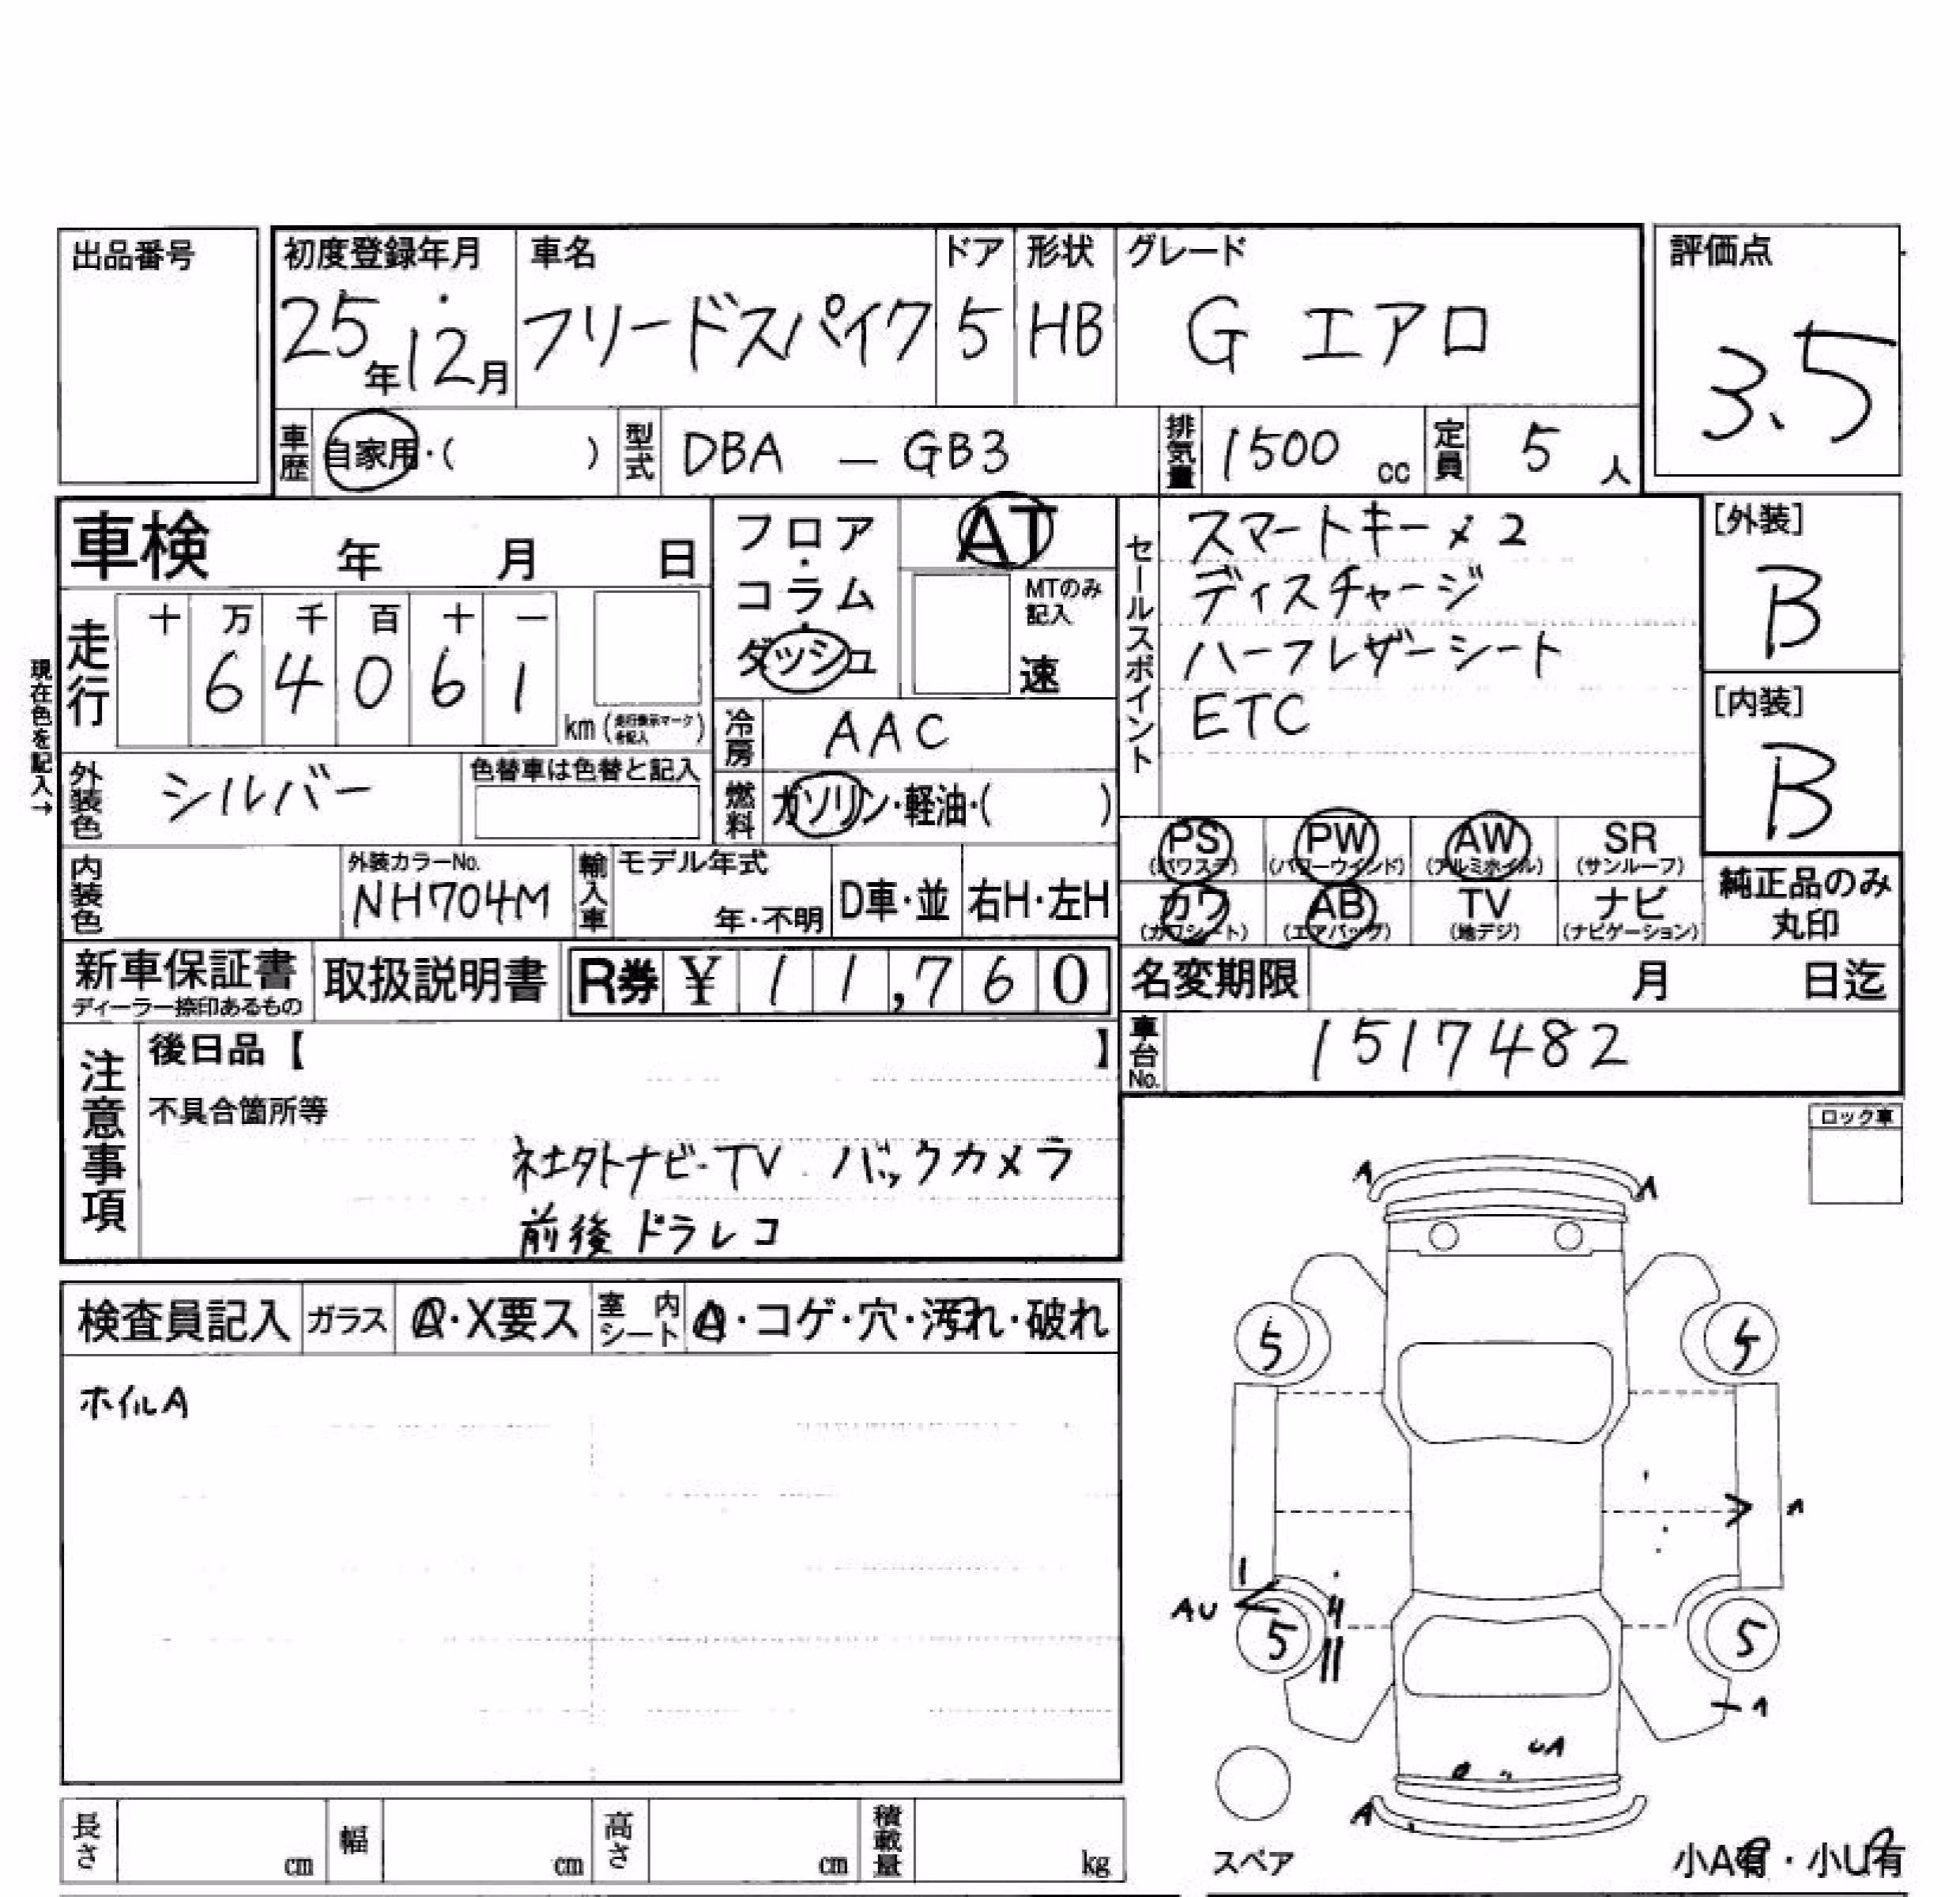 出品番号
初度登録年月 車名 ドア 形状 グレード 評価点
25年12月 フリードスパイク 5 HB G エアロ 3.5
車歴 自家用・( ) 型式 DBA - GB3 排気量 1500 cc 定員 5 人
車検 年 月 日
フロア・コラム・ダッシュ
AT
MTのみ記入
速
セールスポイント
スマートキー×2
ディスチャージ
ハーフレザーシート
ETC
[外装]
B
[内装]
B
現在色を記入→
走行 十 万 千 百 十 一
6 4 0 6 1
km (走行表示マークを記入)
冷房 AAC
外装色 シルバー 色替車は色替と記入
燃料 ガソリン・軽油・( )
PS (パワステ) PW (パワーウインド) AW (アルミホイル) SR (サンルーフ)
カワ (カワシート) AB (エアバッグ) TV (地デジ) ナビ (ナビゲーション)
純正品のみ
丸印
内装色 外装カラーNo. NH704M 輸入車 モデル年式 年・不明 D車・並 右H・左H
新車保証書 ディーラー捺印あるもの 取扱説明書 R券 ¥ 11,760
名変期限 月 日迄
車台No. 1517482
注意事項
後日品【 】
不具合箇所等
社外ナビ・TV バックカメラ
前後ドラレコ
ロック車
検査員記入 ガラス A・X要ス 室内シート A・コゲ・穴・汚れ・破れ
ホイルA
A A
5 5
A
AU
5 5
A
UA
A
スペア
小A有・小U有
長さ cm 幅 cm 高さ cm 積載量 kg